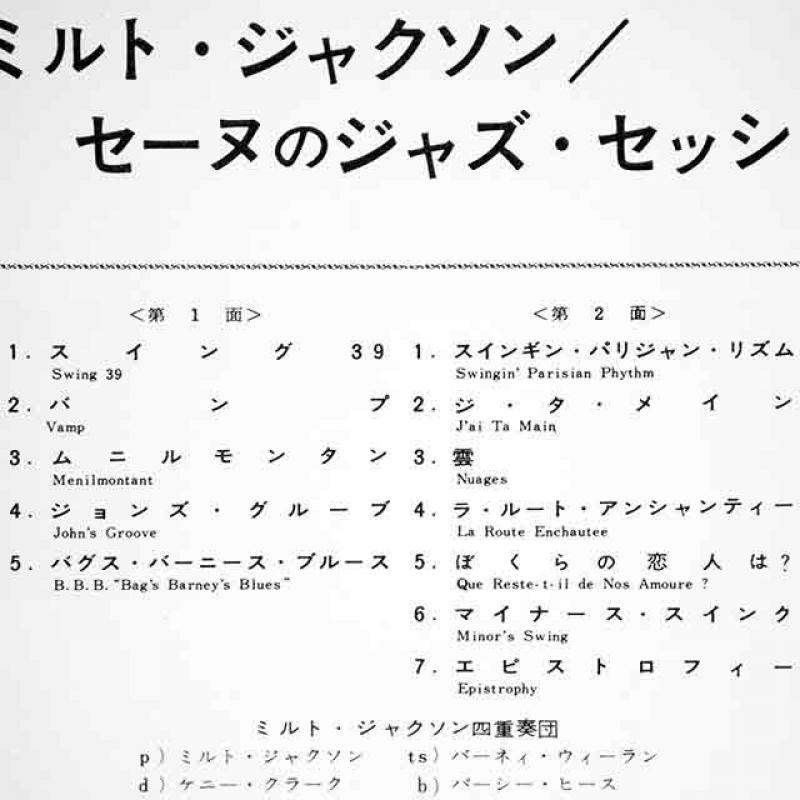 ミルト・ジャクソン／
セーヌのジャズ・セッシ
＜第 1 面＞
1. スイング 39
Swing 39
2. バンプ
Vamp
3. ムニルモンタン
Menilmontant
4. ジョンズ・グルーブ
John's Groove
5. バグス・バーニース・ブルース
B.B.B. "Bag's Barney's Blues"
＜第 2 面＞
1. スインギン・パリジャン・リズム
Swingin' Parisian Phythm
2. ジ・タ・メイン
J'ai Ta Main
3. 雲
Nuages
4. ラ・ルート・アンシャンティー
La Route Enchautee
5. ぼくらの恋人は?
Que Reste-t-il de Nos Amoure ?
6. マイナース・スインク
Minor's Swing
7. エピストロフィー
Epistrophy
ミルト・ジャクソン四重奏団
p）ミルト・ジャクソン ts）バーネィ・ウィーラン
d）ケニー・クラーク b）パーシー・ヒース